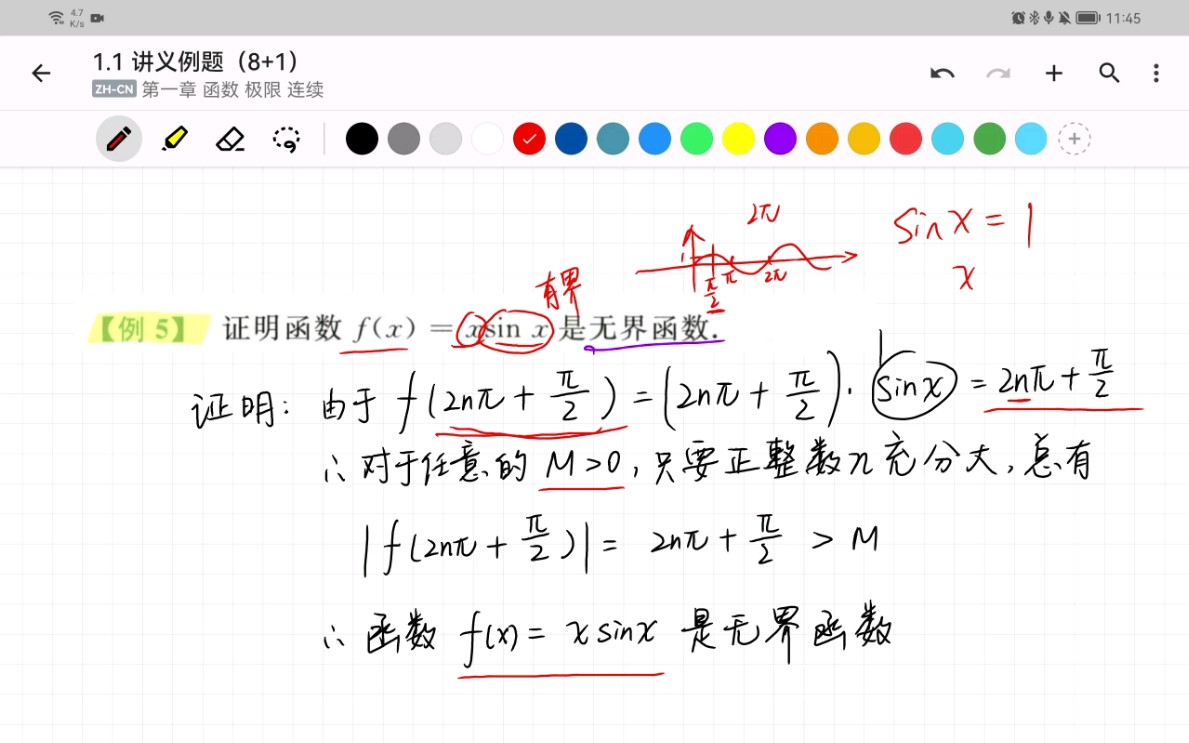 4.7 K/s 11:45
1.1 讲义例题（8+1）
ZH-CN 第一章 函数 极限 连续
2π
sinx = 1
x
1 π/2 π 2π
有界
【例 5】 证明函数 f(x) = xsin x 是无界函数.
1
证明: 由于 f(2nπ + π/2) = (2nπ + π/2)· sinx = 2nπ + π/2
∴ 对于任意的 M>0, 只要正整数n充分大, 总有
|f(2nπ + π/2)| = 2nπ + π/2 > M
∴ 函数 f(x) = x sinx 是无界函数